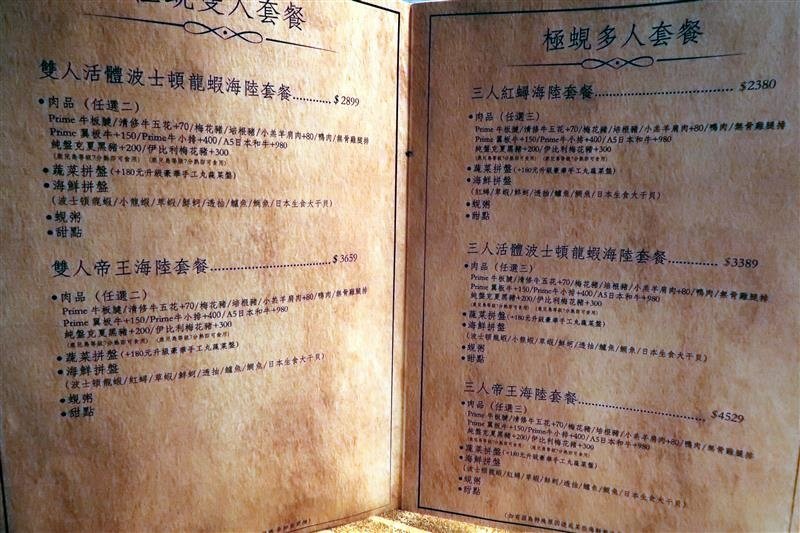 極蜆雙人套餐
雙人活體波士頓龍蝦海陸套餐............$2899
•肉品（任選二）
Prime 牛板腱/清修牛五花+70/梅花豬/培根豬/小羔羊肩肉+80/鴨肉/無骨雞腿排
Prime 翼板牛+150/Prime牛小排+400/A5日本和牛+980
純盤克夏黑豬+200/伊比利梅花豬+300
•蔬菜拼盤(+180元升級豪華手工丸蔬菜盤)
•海鮮拼盤
(波士頓龍蝦/小龍蝦/草蝦/鮮蚵/透抽/鱸魚/鯛魚/日本生食大干貝)
•蜆粥
•甜點
雙人帝王海陸套餐............$3659
•肉品（任選二）
Prime 牛板腱/清修牛五花+70/梅花豬/培根豬/小羔羊肩肉+80/鴨肉/無骨雞腿排
Prime 翼板牛+150/Prime牛小排+400/A5日本和牛+980
純盤克夏黑豬+200/伊比利梅花豬+300
•蔬菜拼盤(+180元升級豪華手工丸蔬菜盤)
•海鮮拼盤
(波士頓龍蝦/紅蟳/草蝦/鮮蚵/透抽/鱸魚/鯛魚/日本生食大干貝)
•蜆粥
•甜點
極蜆多人套餐
三人紅蟳海陸套餐............$2380
•肉品（任選三）
Prime 牛板腱/清修牛五花+70/梅花豬/培根豬/小羔羊肩肉+80/鴨肉/無骨雞腿排
Prime 翼板牛+150/Prime牛小排+400/A5日本和牛+980
純盤克夏黑豬+200/伊比利梅花豬+300
•蔬菜拼盤(+180元升級豪華手工丸蔬菜盤)
•海鮮拼盤
(紅蟳/草蝦/鮮蚵/透抽/鱸魚/鯛魚/日本生食大干貝)
•蜆粥
•甜點
三人活體波士頓龍蝦海陸套餐............$3389
•肉品（任選三）
Prime 牛板腱/清修牛五花+70/梅花豬/培根豬/小羔羊肩肉+80/鴨肉/無骨雞腿排
Prime 翼板牛+150/Prime牛小排+400/A5日本和牛+980
純盤克夏黑豬+200/伊比利梅花豬+300
•蔬菜拼盤(+180元升級豪華手工丸蔬菜盤)
•海鮮拼盤
(波士頓龍蝦/小龍蝦/草蝦/鮮蚵/透抽/鱸魚/鯛魚/日本生食大干貝)
•蜆粥
•甜點
三人帝王海陸套餐............$4529
•肉品（任選三）
Prime 牛板腱/清修牛五花+70/梅花豬/培根豬/小羔羊肩肉+80/鴨肉/無骨雞腿排
Prime 翼板牛+150/Prime牛小排+400/A5日本和牛+980
純盤克夏黑豬+200/伊比利梅花豬+300
•蔬菜拼盤(+180元升級豪華手工丸蔬菜盤)
•海鮮拼盤
(波士頓龍蝦/紅蟳/草蝦/鮮蚵/透抽/鱸魚/鯛魚/日本生食大干貝)
•蜆粥
•甜點